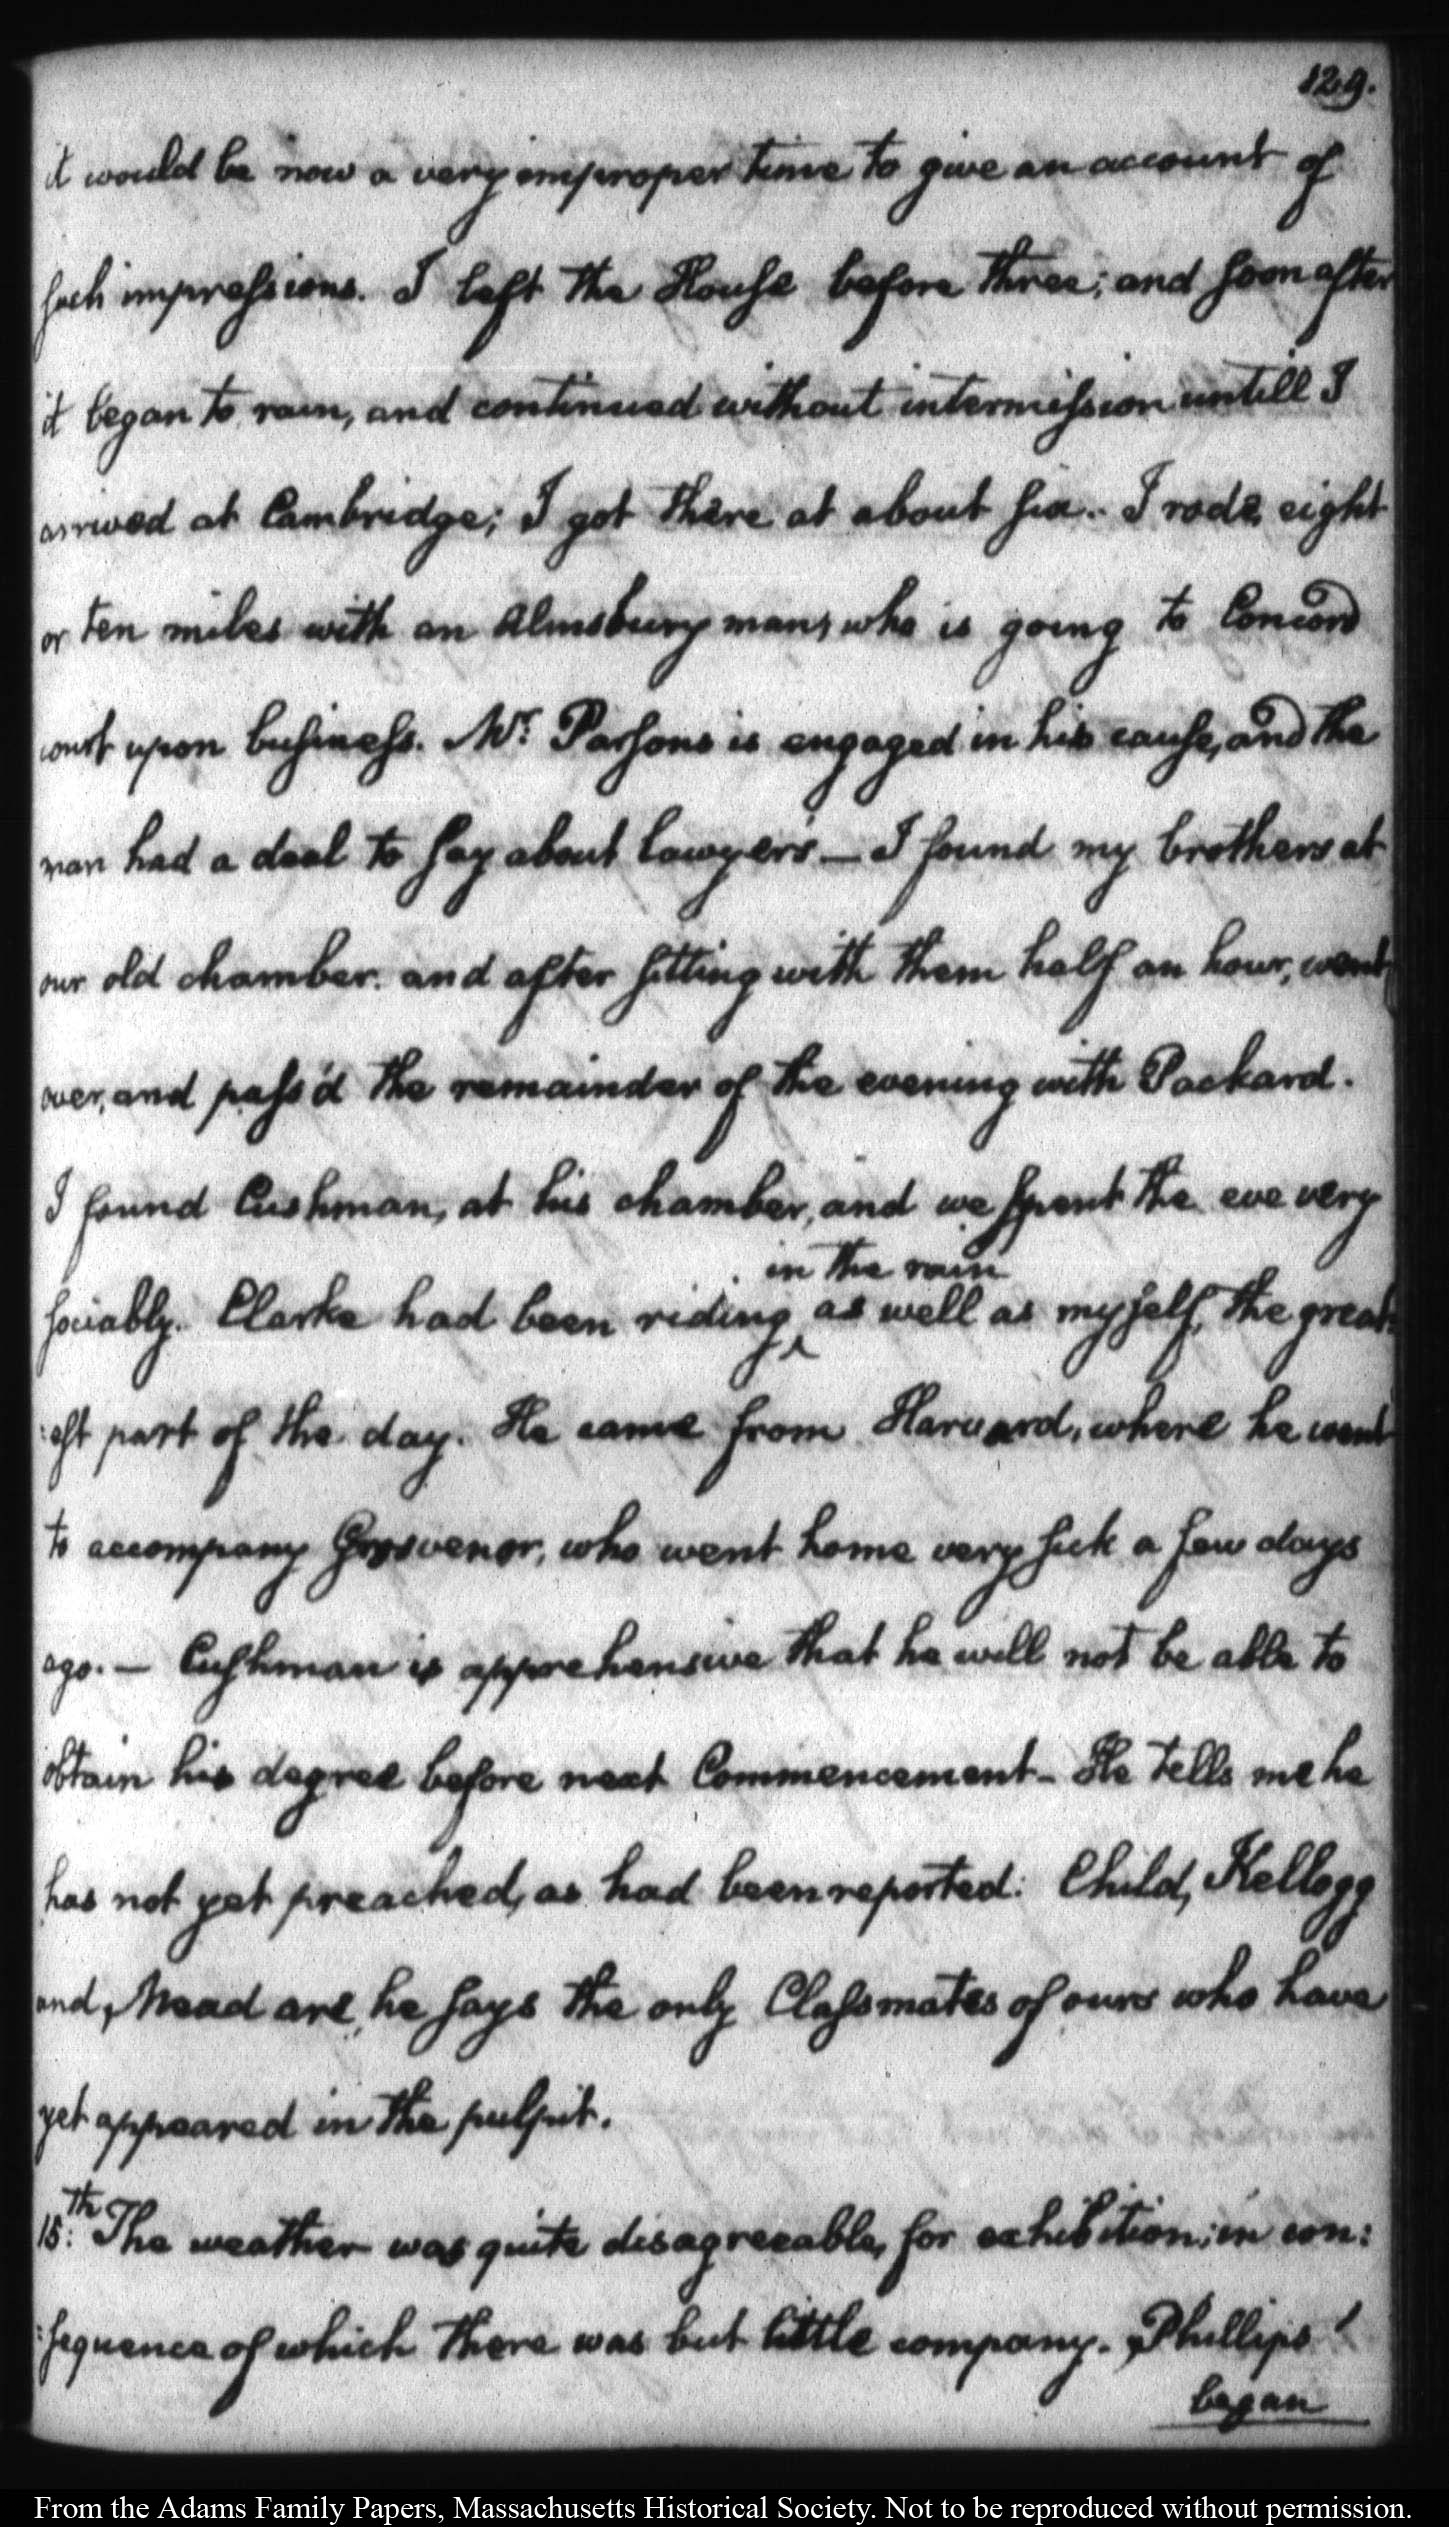 129.
it would be now a very improper time to give an account of
such impressions. I left the House before three; and soon after
it began to rain, and continued without intermission untill I
arrived at Cambridge; I got there at about six. I rode eight
or ten miles with an Almsbury man, who is going to Concord
court upon business. Mr. Parsons is engaged in his cause, and the
man had a deal to say about lawyers — I found my brothers at
our old chamber. and after sitting with them half an hour, went
over, and pass'd the remainder of the evening with Packard.
I found Cushman, at his chamber, and we spent the eve very
in the rain
sociably. Clarke had been riding ‸ as well as myself, the great:
:est part of the day. He came from Harvard, where he went
to accompany Grosvenor, who went home very sick a few days
ago. — Cushman is apprehensive that he will not be able to
obtain his degree before next Commencement — He tells me he
has not yet preached, as had been reported. Child, Kellogg
and, Mead are, he says the only Classmates of ours who have
yet appeared in the pulpit.
15:th The weather was quite disagreeable, for exhibition; in con:
:sequence of which there was but little company. Phillips
began
From the Adams Family Papers, Massachusetts Historical Society. Not to be reproduced without permission.